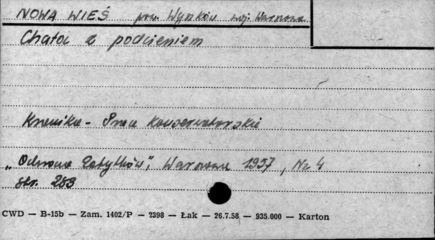 NOWA WIEŚ pow. Wyszków woj. Warszawa
Chata z podcieniem
Kronika - Prace konserwatorskie
„Ochrona Zabytków", Warszawa 1957, Nr 4
str. 283
CWD — B-15b — Zam. 1402/P — 2398 — Łak — 26.7.58 — 935.000 — Karton